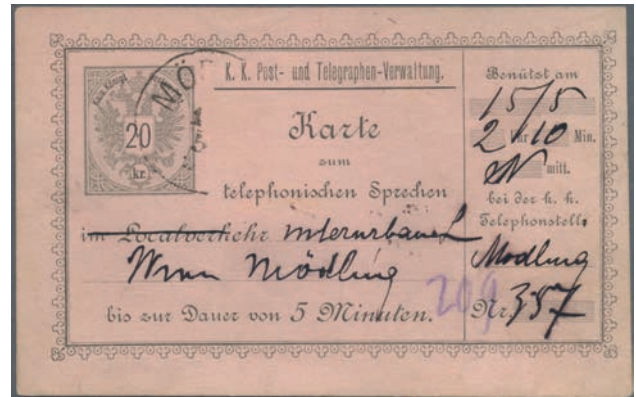 K. K. Post- und Telegraphen-Verwaltung.
Kais. Königl.
20
kr.
MÖ
Karte
zum
telephonischen Sprechen
im Localverkehr interurbanen
Wien Mödling
bis zur Dauer von 5 Minuten.
209
Benützt am
15/5
2 Uhr 10 Min.
N mitt.
bei der k. k.
Telephonstelle
Modling
Nr. 357